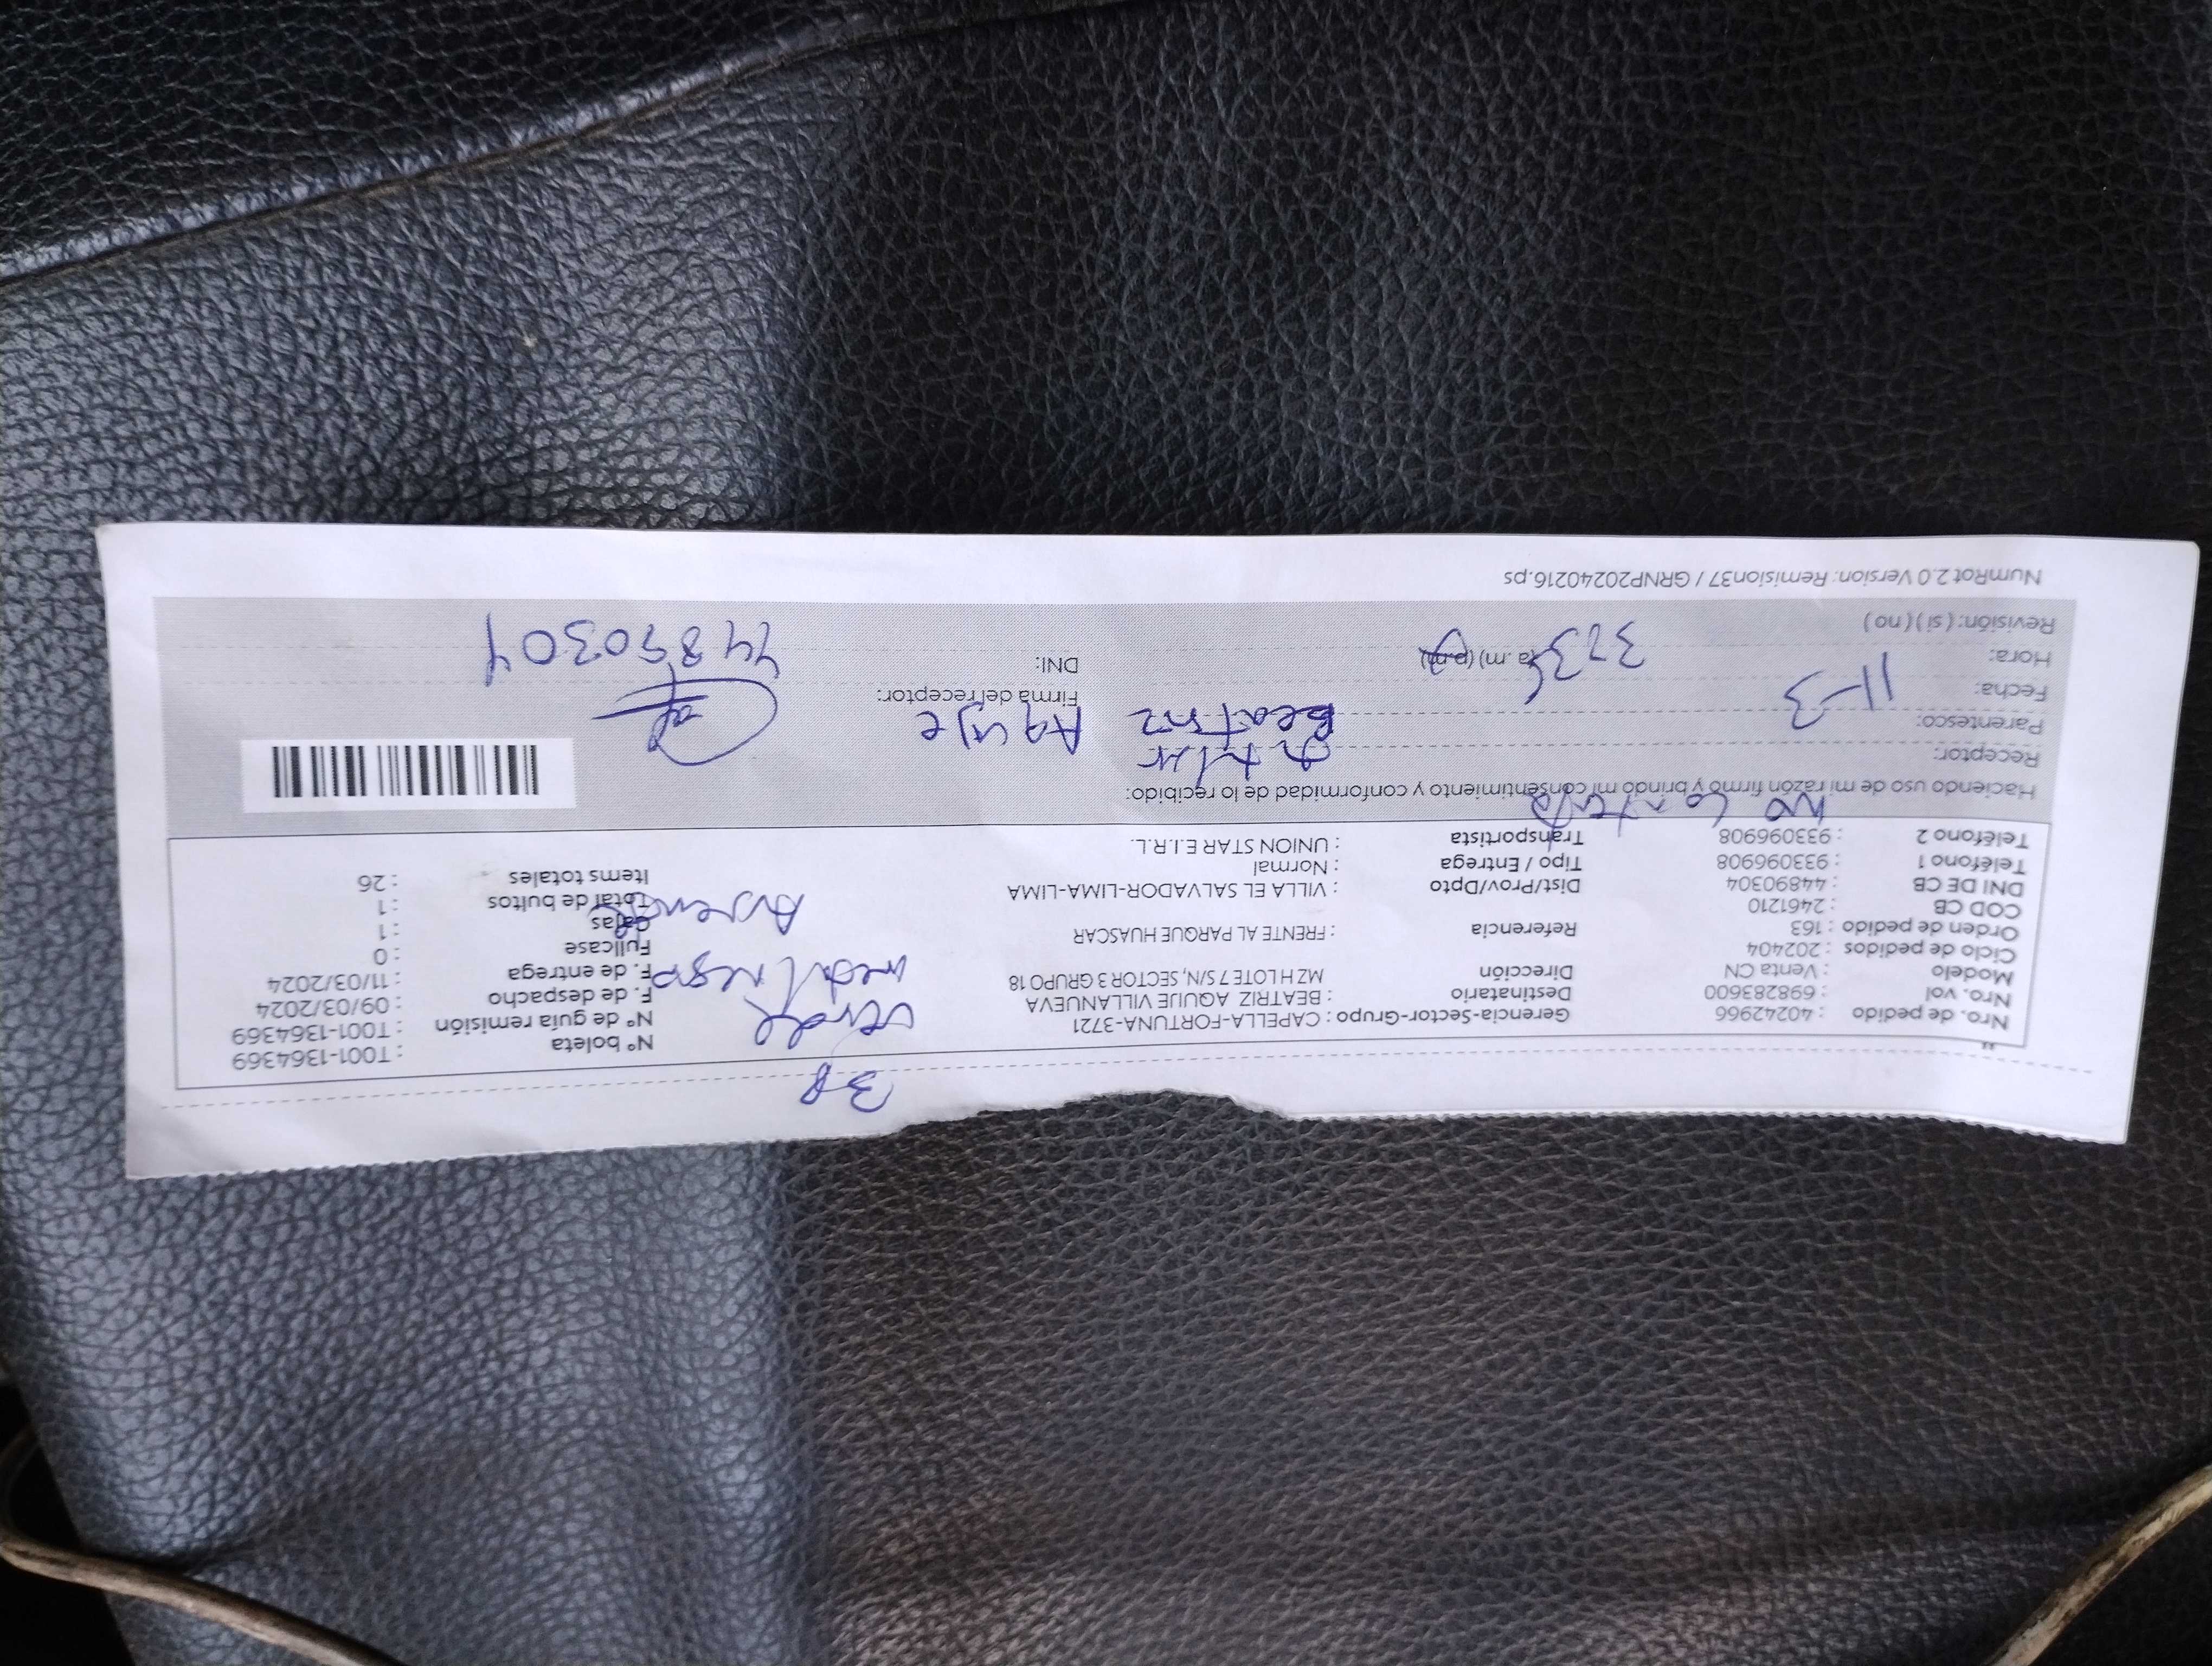 3P
Nro. de pedido : 40242966
Nro. vol : 698283600
Modelo : Venta CN
Ciclo de pedidos : 202404
Orden de pedido : 163
COD CB : 2461210
DNI DE CB : 44890304
Teléfono 1 : 933096908
Teléfono 2 : 933096908
Gerencia-Sector-Grupo : CAPELLA-FORTUNA-3721
Destinatario : BEATRIZ AQUIJE VILLANUEVA
Dirección MZ H LOTE 7 S/N, SECTOR 3 GRUPO 18
Referencia : FRENTE AL PARQUE HUASCAR
Dist/Prov/Dpto : VILLA EL SALVADOR-LIMA-LIMA
Tipo / Entrega : Normal
Transportista : UNION STAR E.I.R.L.
verde
metal negro
N° boleta : T001-1364369
N° de guía remisión : T001-1364369
F. de despacho : 09/03/2024
F. de entrega : 11/03/2024
Fullcase : 0
Cajas : 1
Total de bultos : 1
Items totales : 26
No contesta
Haciendo uso de mi razón firmo y brindo mi consentimiento y conformidad de lo recibido:
Receptor: titular
Parentesco: Beatriz Aquije
Fecha: 11-3
Hora: (a.m) (p.m)
Revisión: ( si ) ( no )
Firma del receptor:
DNI: 44890304
NumRot 2.0 Version: Remision37 / GRNP20240216.ps